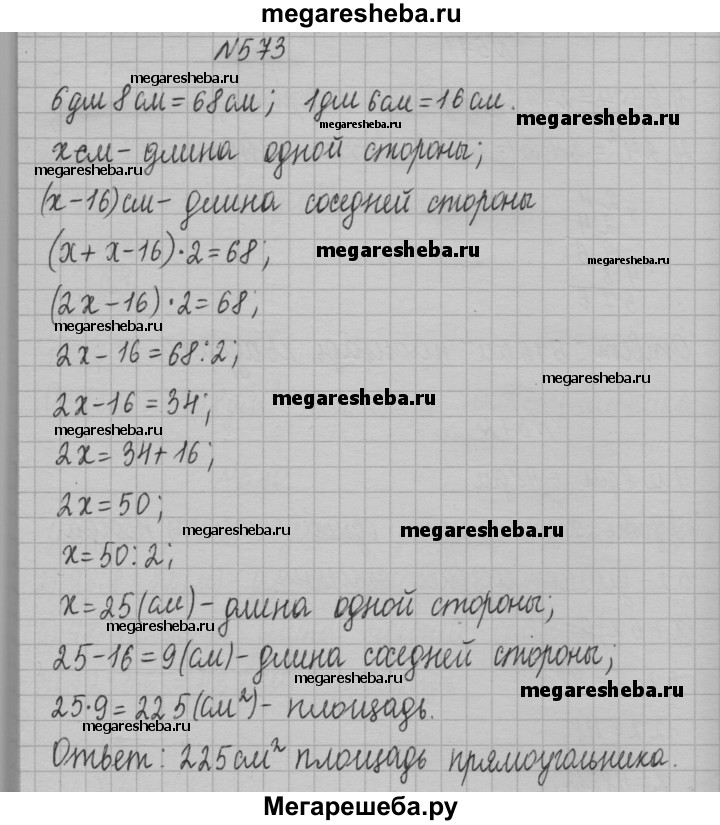 megaresheba.ru
N573
megaresheba.ru
6дм 8см = 68см; 1дм 6см = 16см.
megaresheba.ru
megaresheba.ru
x см - длина одной стороны;
megaresheba.ru
(x - 16) см - длина соседней стороны
(x + x - 16) · 2 = 68;
megaresheba.ru
megaresheba.ru
(2x - 16) · 2 = 68;
megaresheba.ru
2x - 16 = 68 : 2;
megaresheba.ru
2x - 16 = 34;
megaresheba.ru
megaresheba.ru
2x = 34 + 16;
2x = 50;
megaresheba.ru
megaresheba.ru
x = 50 : 2;
x = 25 (см) - длина одной стороны;
megaresheba.ru
25 - 16 = 9 (см) - длина соседней стороны;
megaresheba.ru
megaresheba.ru
25 · 9 = 225 (см²) - площадь.
Ответ: 225 см² площадь прямоугольника.
Мегарешеба.ру